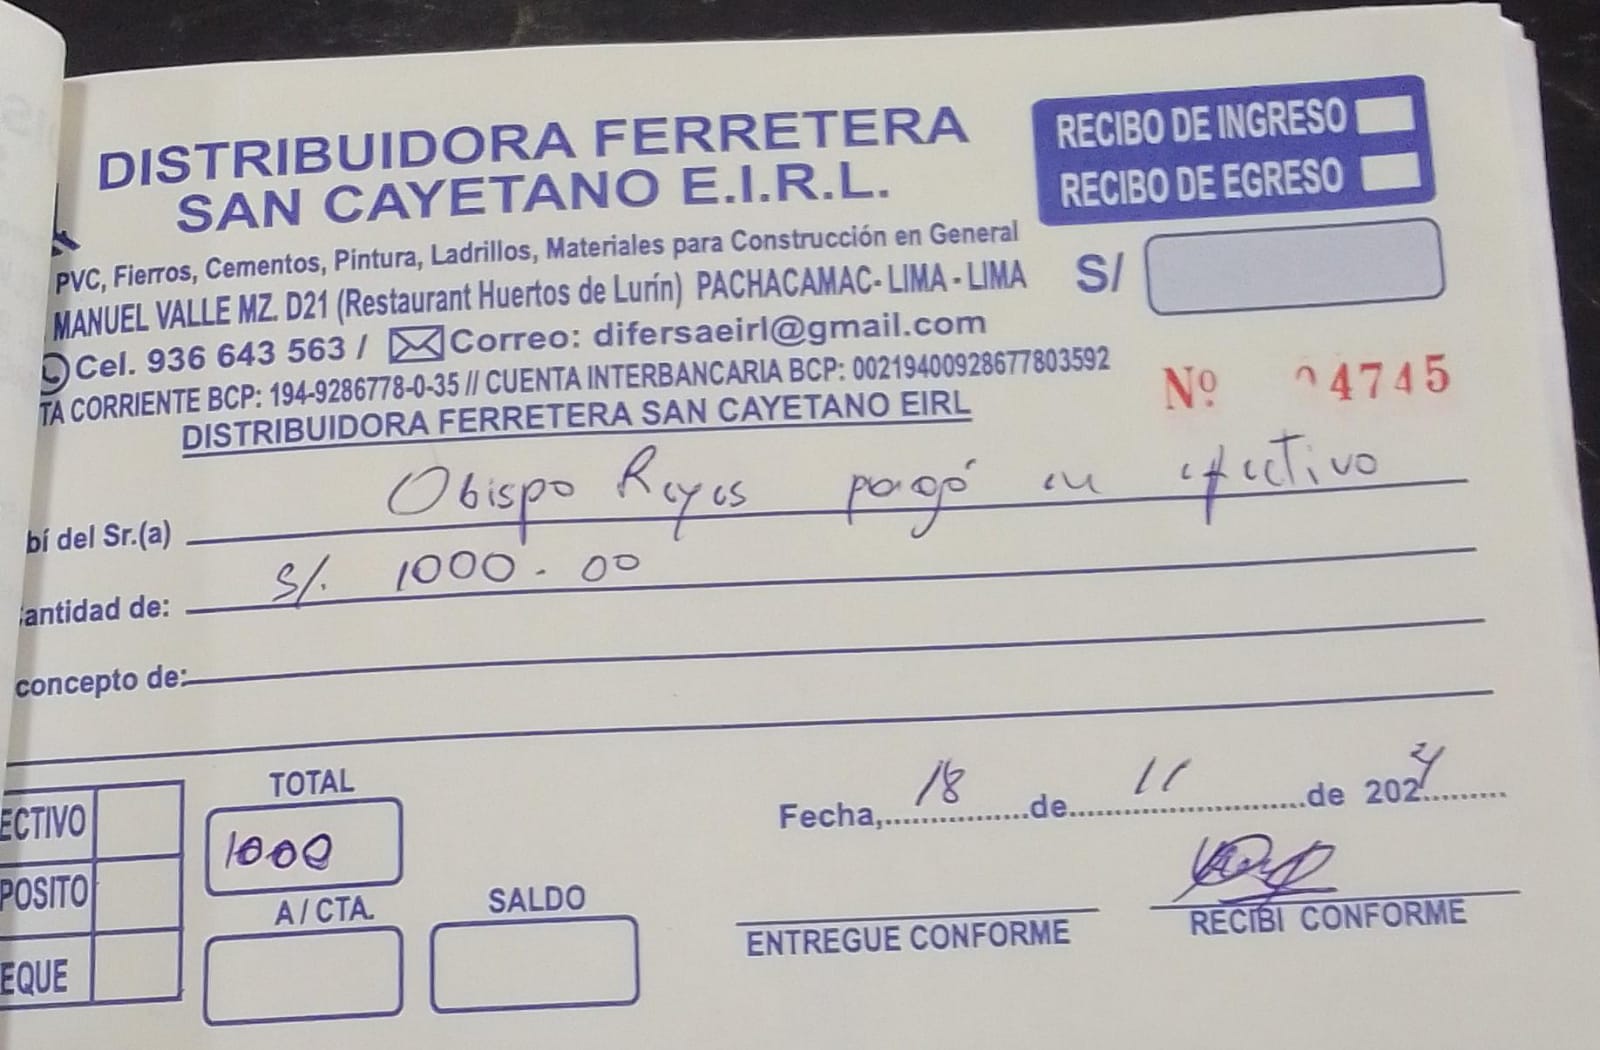 DISTRIBUIDORA FERRETERA
SAN CAYETANO E.I.R.L.
PVC, Fierros, Cementos, Pintura, Ladrillos, Materiales para Construcción en General
MANUEL VALLE MZ. D21 (Restaurant Huertos de Lurín) PACHACAMAC- LIMA - LIMA
Cel. 936 643 563 / Correo: difersaeirl@gmail.com
TA CORRIENTE BCP: 194-9286778-0-35 // CUENTA INTERBANCARIA BCP: 00219400928677803592
DISTRIBUIDORA FERRETERA SAN CAYETANO EIRL
RECIBO DE INGRESO
RECIBO DE EGRESO
S/
Nº 04745
bí del Sr.(a) Obispo Reyes pagó en efectivo
cantidad de: S/. 1000.00
concepto de:
ECTIVO
POSITO
EQUE
TOTAL
1000
A / CTA.
SALDO
Fecha, 18 de 11 de 2024
ENTREGUE CONFORME
RECIBI CONFORME